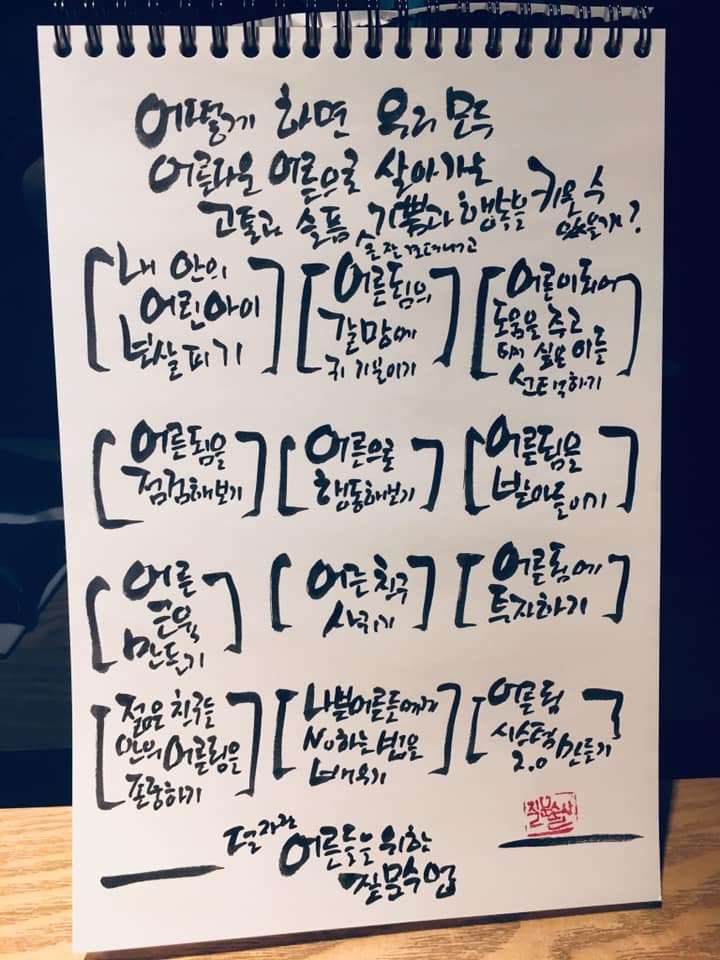 어떻게 하면 우리 모두
어른다운 어른으로 살아가는
고통과 슬픔, 기쁨과 행복을 키울 수
있을까?
잘 견뎌내고
내 안의
어린아이
보살피기
어른됨의
갈망에
귀 기울이기
어른이 되어
도움을 주고
싶은 이들
선택하기
어른됨을
점검해보기
어른으로
행동해보기
어른됨을
받아들이기
어른
근육
만들기
어른 친구
사귀기
어른됨에
투자하기
젊은 친구들
안의 어른됨을
존중하기
나쁜어른들에게
No하는 법을
배우기
어른됨
시스템
2.0 만들기
질문술사
덜 자란
어른들을 위한
질문수업